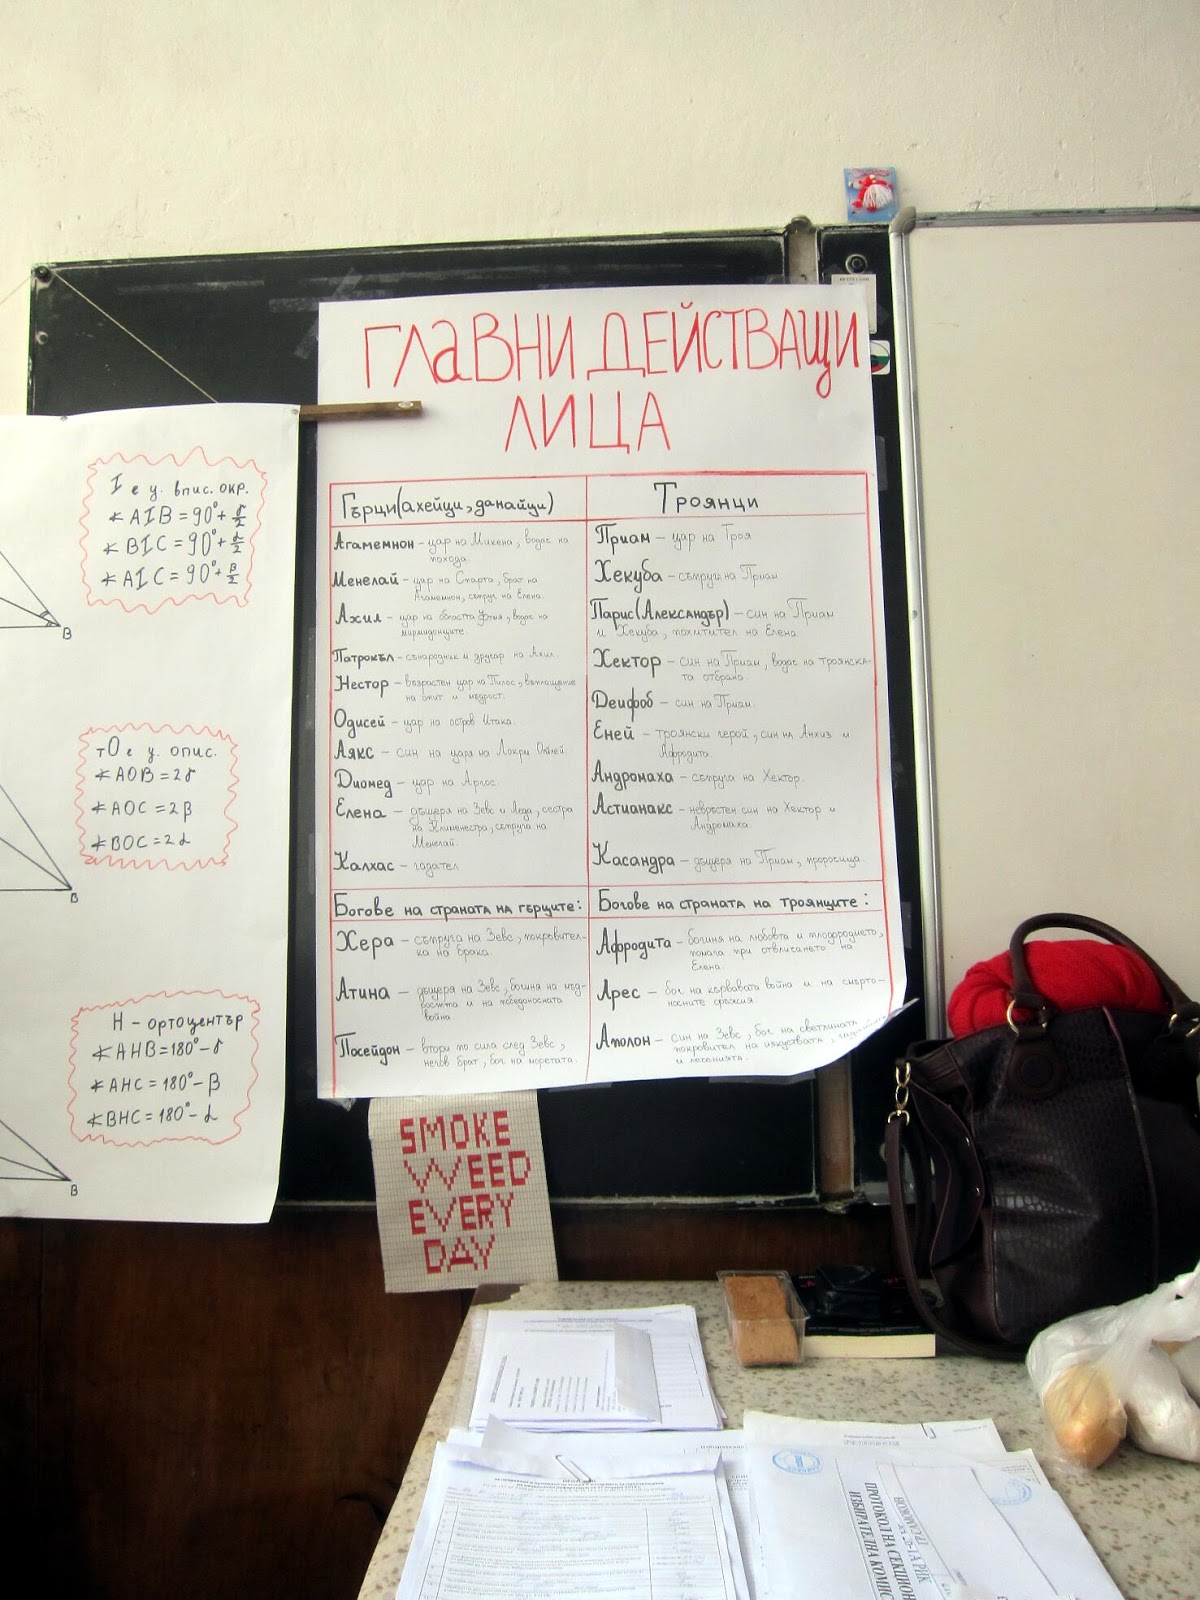 ГЛАВНИ ДЕЙСТВАЩИ
ЛИЦА
Гърци(ахейци, данайци)
Агамемнон – цар на Микена, водач на
похода.
Менелай – цар на Спарта, брат на
Агамемнон, съпруг на Елена.
Ахил – цар на областта Фтия, водач на
мирмидонците.
Патрокъл – сънародник и другар на Ахил.
Нестор – възрастен цар на Пилос, въплащение
на опит и мъдрост.
Одисей – цар на остров Итака.
Аякс – син на царя на Локри Ойлей
Диомед – цар на Аргос.
Елена – дъщеря на Зевс и Леда, сестра
на Клименестра, съпруга на
Менелай.
Калхас – гадател
Троянци
Приам – цар на Троя
Хекуба – съпруга на Приам
Парис(Александър) – син на Приам
и Хекуба, похитител на Елена
Хектор – син на Приам, водач на троянска-
та отбрана.
Деифоб – син на Приам.
Еней – троянски герой, син на Анхиз и
Афродита.
Андромаха – съпруга на Хектор.
Астианакс – невръстен син на Хектор и
Андромаха
Касандра – дъщеря на Приам, пророчица.
Богове на страната на гърците:
Хера – съпруга на Зевс, покровител-
ка на брака.
Атина – дъщеря на Зевс, богиня на мъд-
ростта и на победоносната
война.
Посейдон – втори по сила след Зевс,
негов брат, бог на моретата.
Богове на страната на троянците:
Афродита – богиня на любовта и плодородието,
помага при отвличането на
Елена.
Арес – бог на кървавата война и на смърто-
носните оръжия
Аполон – син на Зевс, бог на светлината
покровител на изкуствата,
и лечението.
I е ц. впис. окр.
∢ AIB = 90° + γ/2
∢ BIC = 90° + α/2
∢ AIC = 90° + β/2
B
тО е ц. опис.
∢ AOB = 2γ
∢ AOC = 2β
∢ BOC = 2α
B
H – ортоцентър
∢ AHB = 180° – γ
∢ AHC = 180° – β
∢ BHC = 180° – α
B
SMOKE
WEED
EVERY
DAY
ПРОТОКОЛ НА СЕКЦИОН
ИЗБИРАТЕЛНА КОМИС